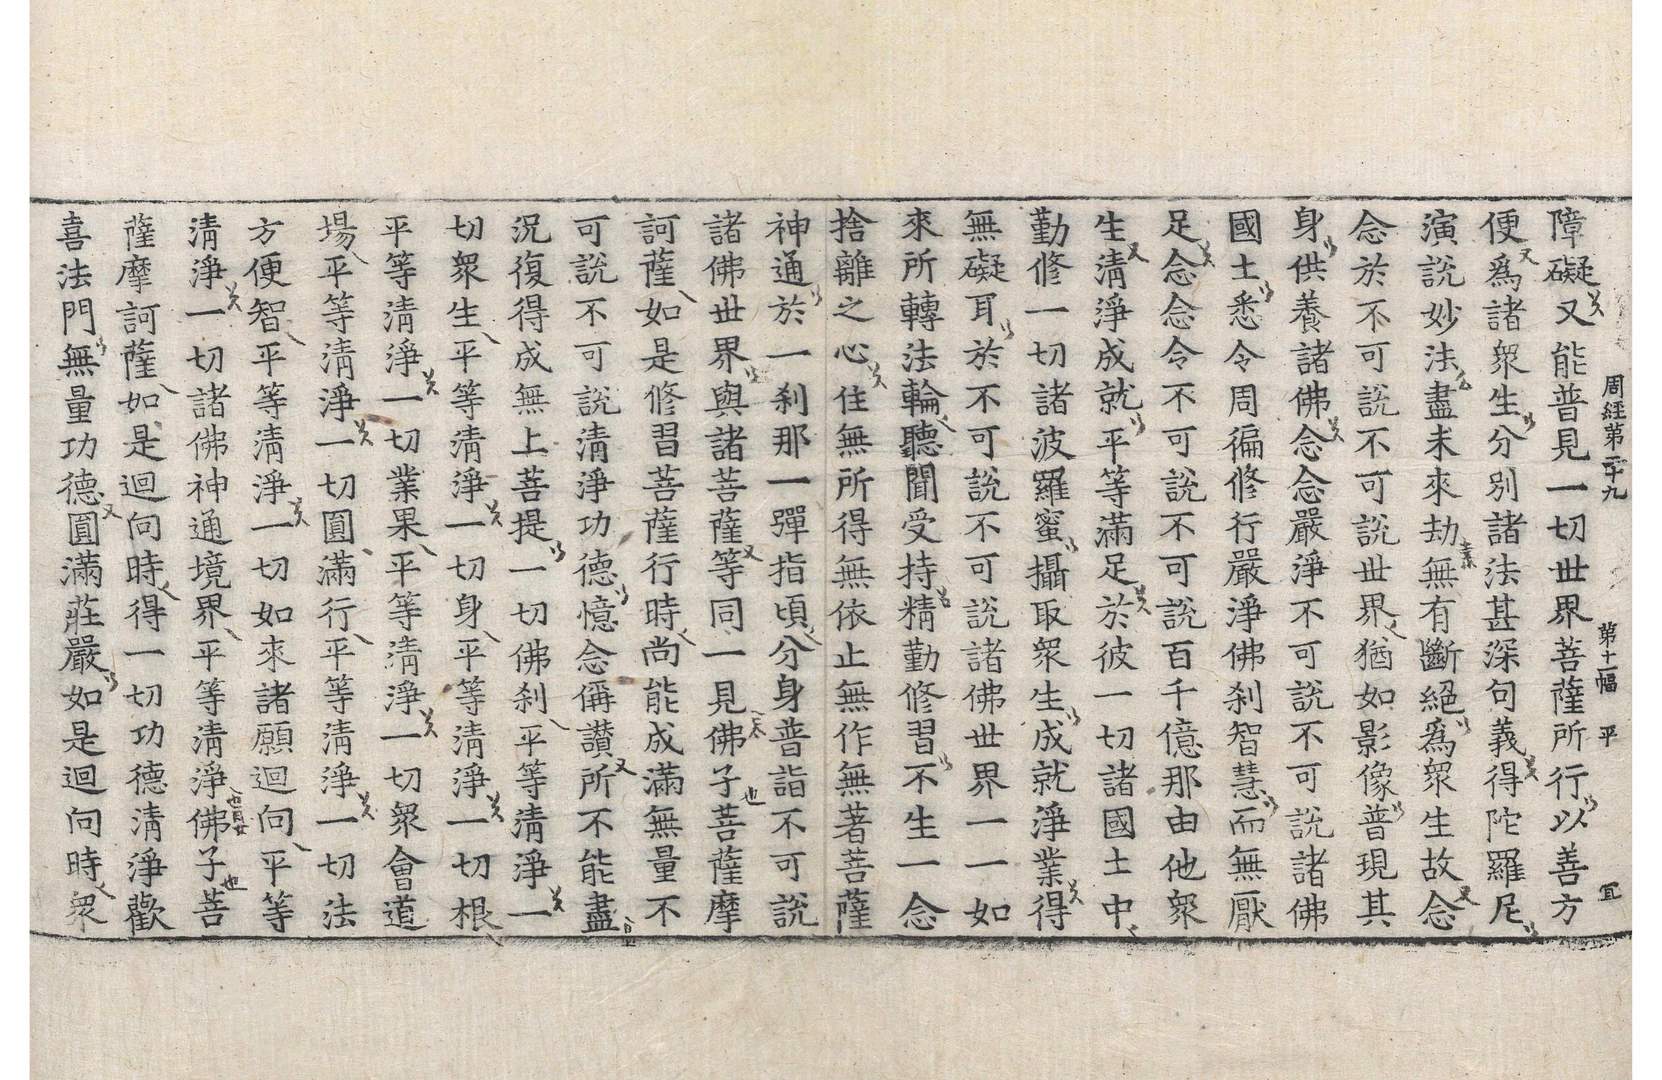 周經第二十九　第十一幅　平　宜
障礙又能普見一切世界菩薩所行以善方
便爲諸衆生分別諸法甚深句義得陀羅尼
演說妙法盡未來劫無有斷絕爲衆生故念
念於不可說不可說世界猶如影像普現其
身供養諸佛念念嚴淨不可說不可說諸佛
國土悉令周徧修行嚴淨佛刹智慧而無厭
足念念令不可說不可說百千億那由他衆
生清淨成就平等滿足於彼一切諸國土中
勤修一切諸波羅蜜攝取衆生成就淨業得
無礙耳於不可說不可說諸佛世界一一如
來所轉法輪聽聞受持精勤修習不生一念
捨離之心住無所得無依止無作無著菩薩
神通於一刹那一彈指頃分身普詣不可說
諸佛世界與諸菩薩等同一見佛子菩薩摩
訶薩如是修習菩薩行時尚能成滿無量不
可說不可說清淨功德憶念偁讃所不能盡
況復得成無上菩提一切佛刹平等清淨一
切衆生平等清淨一切身平等清淨一切根
平等清淨一切業果平等清淨一切衆會道
場平等清淨一切圓滿行平等清淨一切法
方便智平等清淨一切如來諸願迴向平等
清淨一切諸佛神通境界平等清淨佛子菩
薩摩訶薩如是迴向時得一切功德清淨歡
喜法門無量功德圓滿莊嚴如是迴向時衆